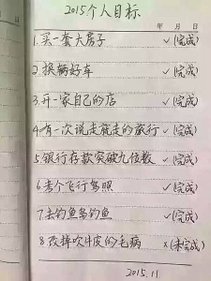 2015个人目标
年 月 日
1.买一套大房子 ✓(完成)
2.换辆好车 ✓(完成)
3.开一家自己的店 ✓(完成)
4.有一次说走就走的旅行 ✓(完成)
5.银行存款突破九位数 ✓(完成)
6.考个飞行驾照 ✓(完成)
7.去钓鱼岛钓鱼 ✓(完成)
8.改掉吹牛皮的毛病 ×(未完成)
2015.11